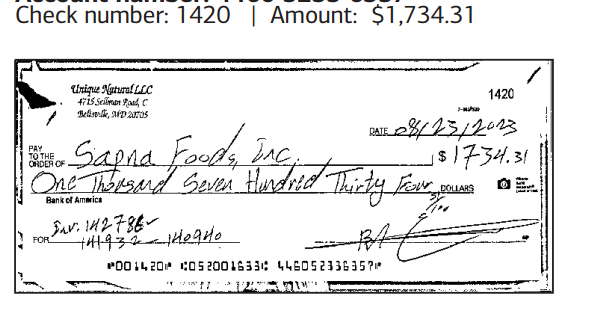 Check number: 1420 | Amount: $1,734.31
Unique Natural LLC
4715 Sellman Road, C
Beltsville, MD 20705
1420
DATE 08/23/2023
PAY TO THE ORDER OF Sapna Foods, Inc. $ 1734.31
One Thousand Seven Hundred Thirty Four 31/100 DOLLARS
Bank of America
Inv: 142786
FOR 141932 - 140940
⑈001420⑈ ⑆052001633⑆ 446052336357⑈